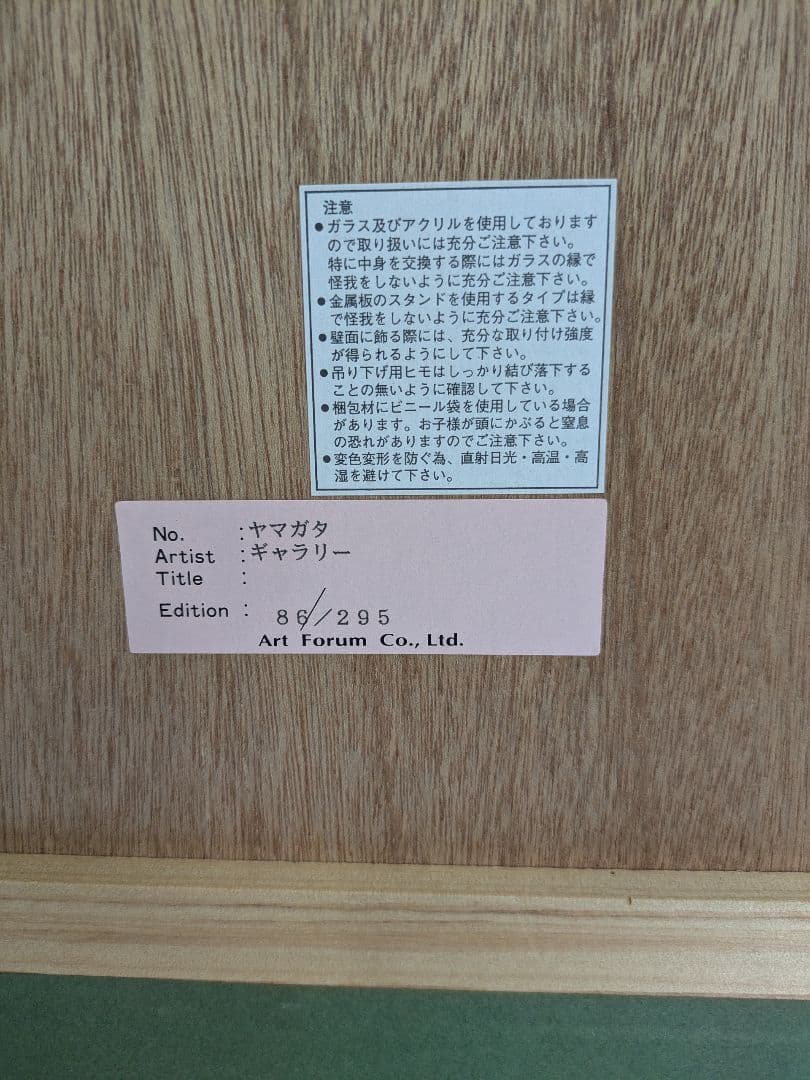 注意
●ガラス及びアクリルを使用しております
ので取り扱いには充分ご注意下さい。
特に中身を交換する際にはガラスの縁で
怪我をしないように充分ご注意下さい。
●金属板のスタンドを使用するタイプは縁
で怪我をしないように充分ご注意下さい。
●壁面に飾る際には、充分な取り付け強度
が得られるようにして下さい。
●吊り下げ用ヒモはしっかり結び落下する
ことの無いように確認して下さい。
●梱包材にビニール袋を使用している場合
があります。お子様が頭にかぶると窒息
の恐れがありますのでご注意下さい。
●変色変形を防ぐ為、直射日光・高温・高
湿を避けて下さい。
No. :ヤマガタ
Artist :ギャラリー
Title :
Edition : 86/295
Art Forum Co., Ltd.